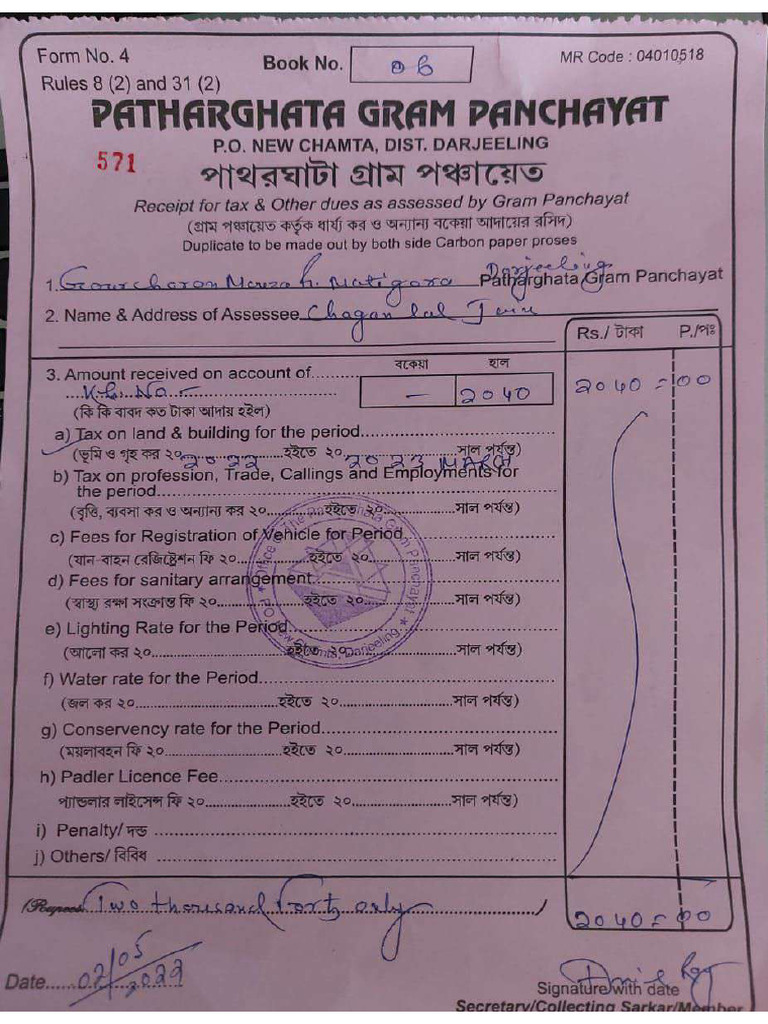 Form No. 4
Rules 8 (2) and 31 (2)
Book No. 06
MR Code : 04010518
PATHARGHATA GRAM PANCHAYAT
P.O. NEW CHAMTA, DIST. DARJEELING
571
পাথরঘাটা গ্রাম পঞ্চায়েত
Receipt for tax & Other dues as assessed by Gram Panchayat
(গ্রাম পঞ্চায়েত কর্তৃক ধার্য্য কর ও অন্যান্য বকেয়া আদায়ের রসিদ)
Duplicate to be made out by both side Carbon paper proses
1. Gourcharan Mouza Matigara Darjeeling Patharghata Gram Panchayat
2. Name & Address of Assessee Chagan lal
Rs./ টাকা P./পঃ
3. Amount received on account of............ বকেয়া হাল
— ২০৪০ ২০৪০ = ০০
(কি কি বাবদ কত টাকা আদায় হইল)
a) Tax on land & building for the period
(ভূমি ও গৃহ কর ২০ ২০২২ হইতে ২০ ২০২৩ MARCH সাল পর্যন্ত)
b) Tax on profession, Trade, Callings and Employments for
the period
(বৃত্তি, ব্যবসা কর ও অন্যান্য কর ২০ হইতে ২০ সাল পর্যন্ত)
c) Fees for Registration of Vehicle for Period
(যান-বাহন রেজিষ্ট্রেশন ফি ২০ হইতে ২০ সাল পর্যন্ত)
d) Fees for sanitary arrangement
(স্বাস্থ্য রক্ষা সংক্রান্ত ফি ২০ হইতে ২০ সাল পর্যন্ত)
e) Lighting Rate for the Period
(আলো কর ২০ হইতে ২০ সাল পর্যন্ত)
f) Water rate for the Period
(জল কর ২০ হইতে ২০ সাল পর্যন্ত)
g) Conservency rate for the Period
(ময়লাবহন ফি ২০ হইতে ২০ সাল পর্যন্ত)
h) Padler Licence Fee
প্যাডলার লাইসেন্স ফি ২০ হইতে ২০ সাল পর্যন্ত)
i) Penalty/ দন্ড
j) Others/ বিবিধ
(Rupees Two thousand Forty only)
২০৪০ = ০০
Date 02/05/2022
Signature with date
Secretary/Collecting Sarkar/Member